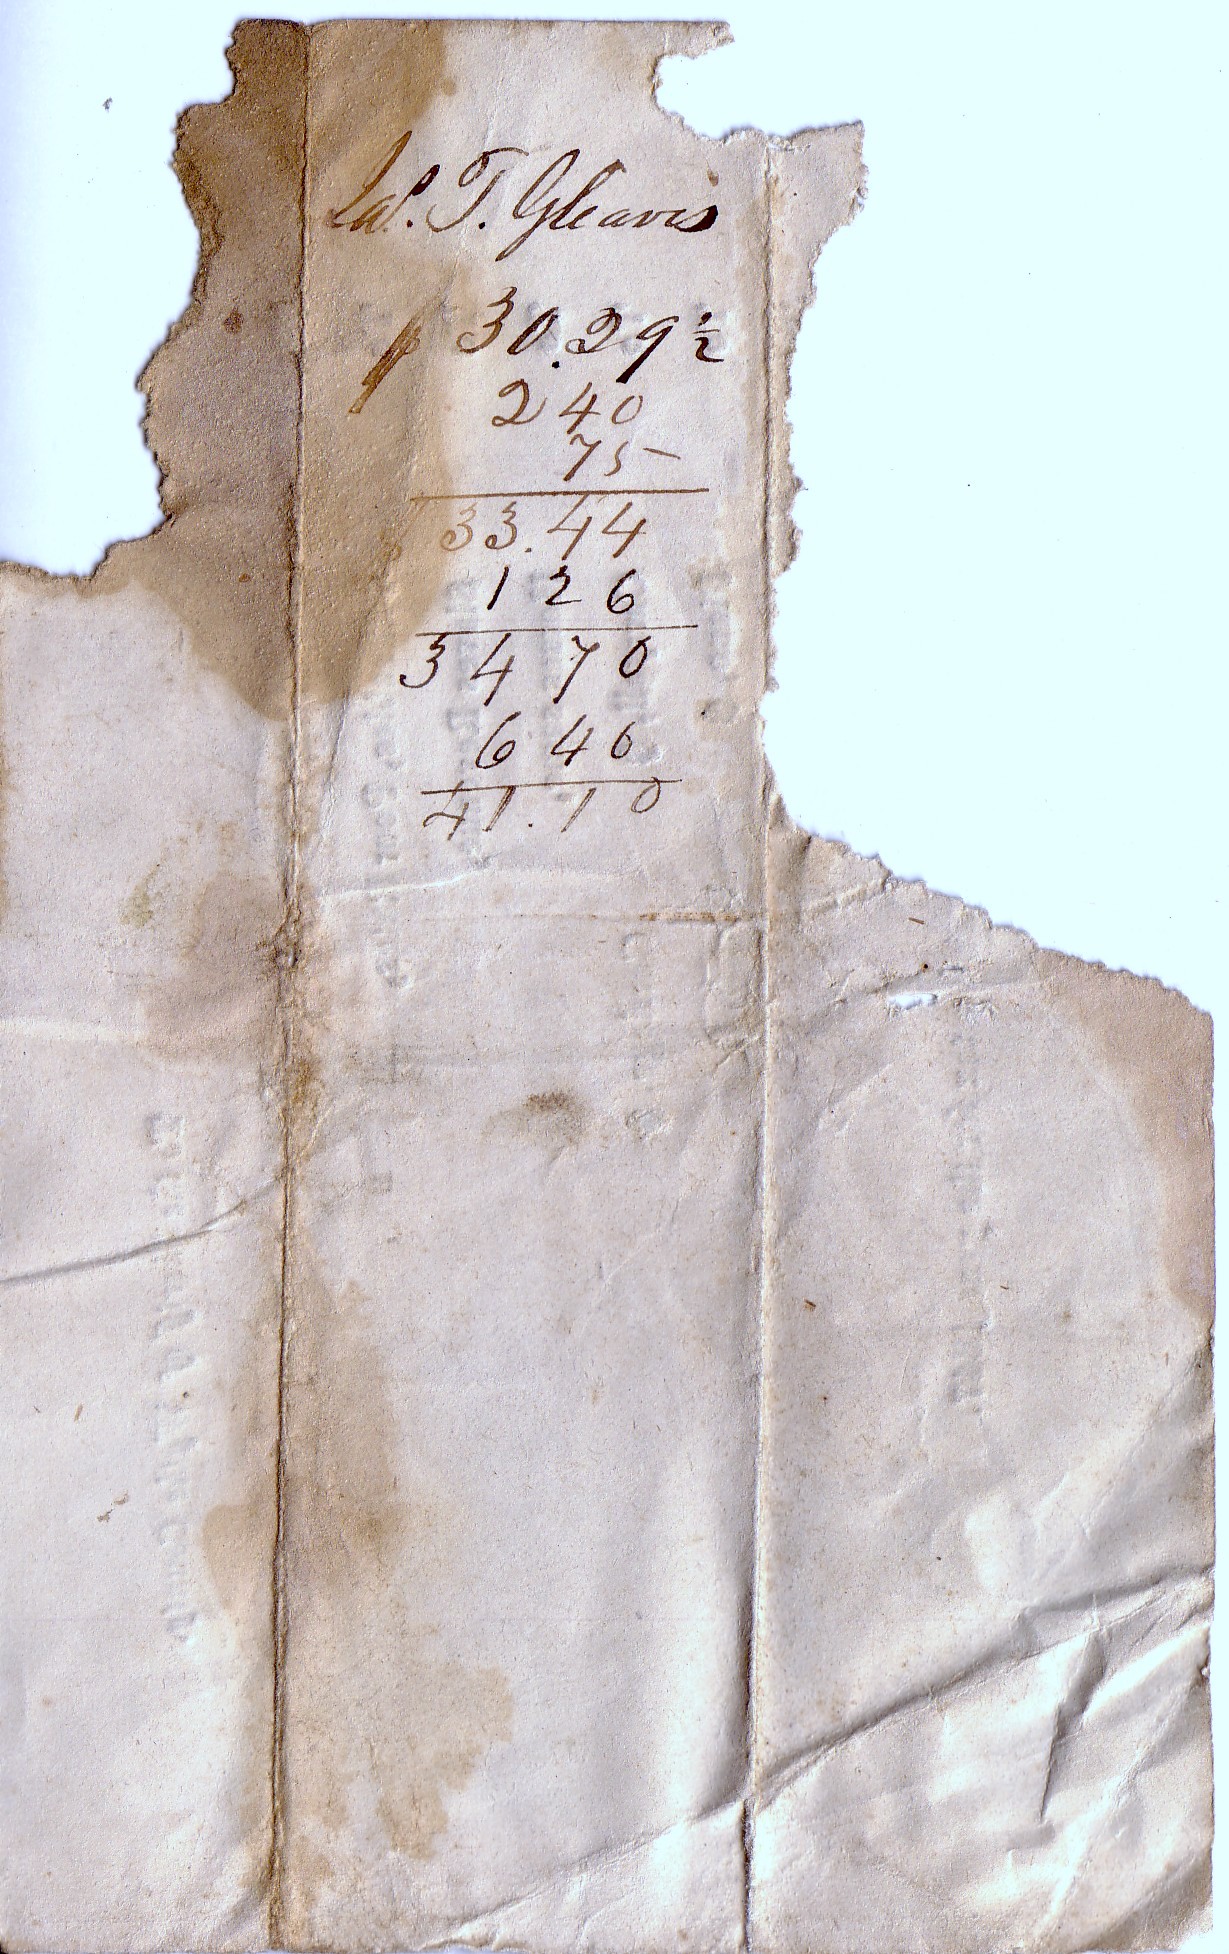 T. Gleavis
$ 30.29 ½
240
75
$ 33.44
126
3470
640
41.10